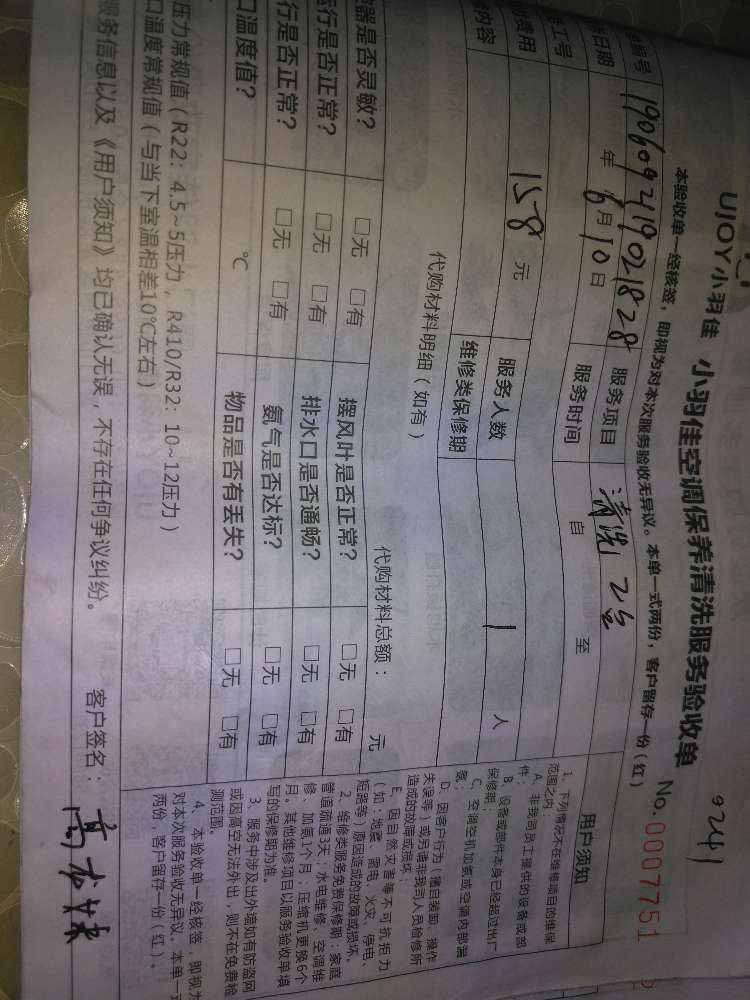 9241
UJOY小羽佳 小羽佳空调保养清洗服务验收单 No.0007751
本验收单一经核签，即视为对本次服务验收无异议。本单一式两份，客户留存一份（红）
编号 1906092419021828 服务项目 清洗 2台
日期 年 6月10日 服务时间 自 至
工号
费用 158 元 服务人数 1 人
内容 维修类保修期
代购材料明细（如有） 代购材料总额： 元
器是否灵敏？ □无 □有 摆风叶是否正常？ □无 □有
行是否正常？ □无 □有 排水口是否通畅？ □无 □有
行是否正常？ □无 □有 氨气是否达标？ □无 □有
口温度值？ ℃ 物品是否有丢失？ □无 □有
压力常规值（R22：4.5~5压力，R410/R32：10~12压力）
口温度常规值（与当下室温相差10℃左右）
服务信息以及《用户须知》均已确认无误，不存在任何争议纠纷。 客户签名：
用户须知
1、下列情况不在维修项目的维保
范围之内：
A、非我司员工提供的设备或部
件；
B、设备或部件本身已经超过出厂
保修期；
C、空调空机加氨或空调内部漏
氨；
D、因客户行为（擅自装卸、操作
失误等）或另请非我司人员检修所
造成的故障或损坏；
E、因自然灾害等不可抗拒力
（如：地震、雷电、火灾、停电、
短路等）原因造成的故障或损坏。
2、维修类服务免费保修期：家庭
管道疏通3天；水电维修、空调维
修、加氨1个月；压缩机更换6个
月。其他维修项目以服务验收单填
写的保修期为准。
3、服务中涉及出外墙如有防盗网
或因高空无法外出，则不在免费检
测范围。
4、本验收单一经核签，即视为
对本次服务验收无异议。本单一式
两份，客户留存一份（红）。